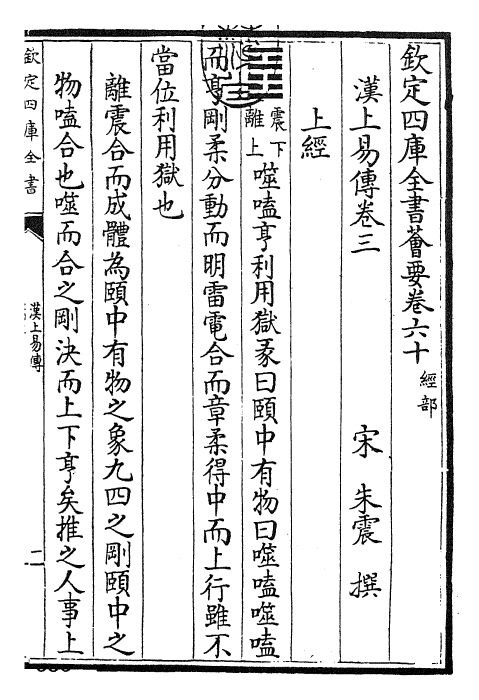 欽定四庫全書薈要卷六十經部
漢上易傳卷三　宋　朱震　撰
上經
震下離上噬嗑亨利用獄彖曰頤中有物曰噬嗑噬嗑
而亨剛柔分動而明雷電合而章柔得中而上行雖不
當位利用獄也
離震合而成體為頤中有物之象九四之剛頤中之
物嗑合也噬而合之剛決而上下亨矣推之人事上
欽定四庫全書
漢上易傳